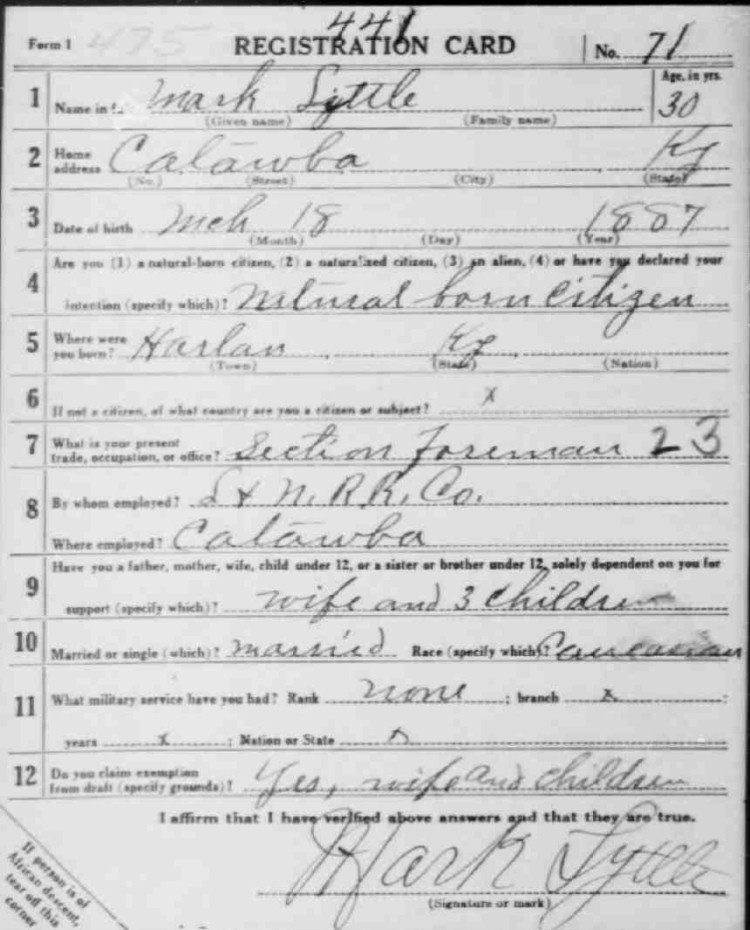 441
Form 1 475 REGISTRATION CARD No. 71
1 Name in f. Mark Lyttle Age, in yrs. 30
(Given name) (Family name)
2 Home address Catawba Ky
(No.) (Street) (City) (State)
3 Date of birth Mch 18 1887
(Month) (Day) (Year)
4 Are you (1) a natural-born citizen, (2) a naturalized citizen, (3) an alien, (4) or have you declared your
intention (specify which)? Natural born citizen
5 Where were you born? Harlan, Ky,
(Town) (State) (Nation)
6 If not a citizen, of what country are you a citizen or subject? x
7 What is your present trade, occupation, or office? Section Foreman 23
8 By whom employed? L & N. R.R. Co.
Where employed? Catawba
9 Have you a father, mother, wife, child under 12, or a sister or brother under 12, solely dependent on you for
support (specify which)? wife and 3 children
10 Married or single (which)? married Race (specify which)? Caucasian
11 What military service have you had? Rank none ; branch x ;
years x ; Nation or State x
12 Do you claim exemption from draft (specify grounds)? Yes, wife and children
I affirm that I have verified above answers and that they are true.
Mark Lyttle
(Signature or mark)
If person is of
African descent,
tear off this
corner